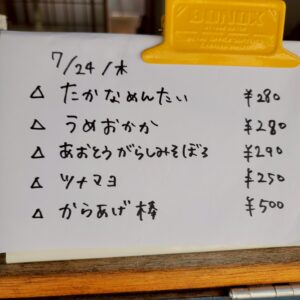 BONOX
7/24/木
△ たかなめんたい ¥280
△ うめおかか ¥280
△ あおとうがらしみそぼろ ¥290
△ ツナマヨ ¥250
△ からあげ棒 ¥500